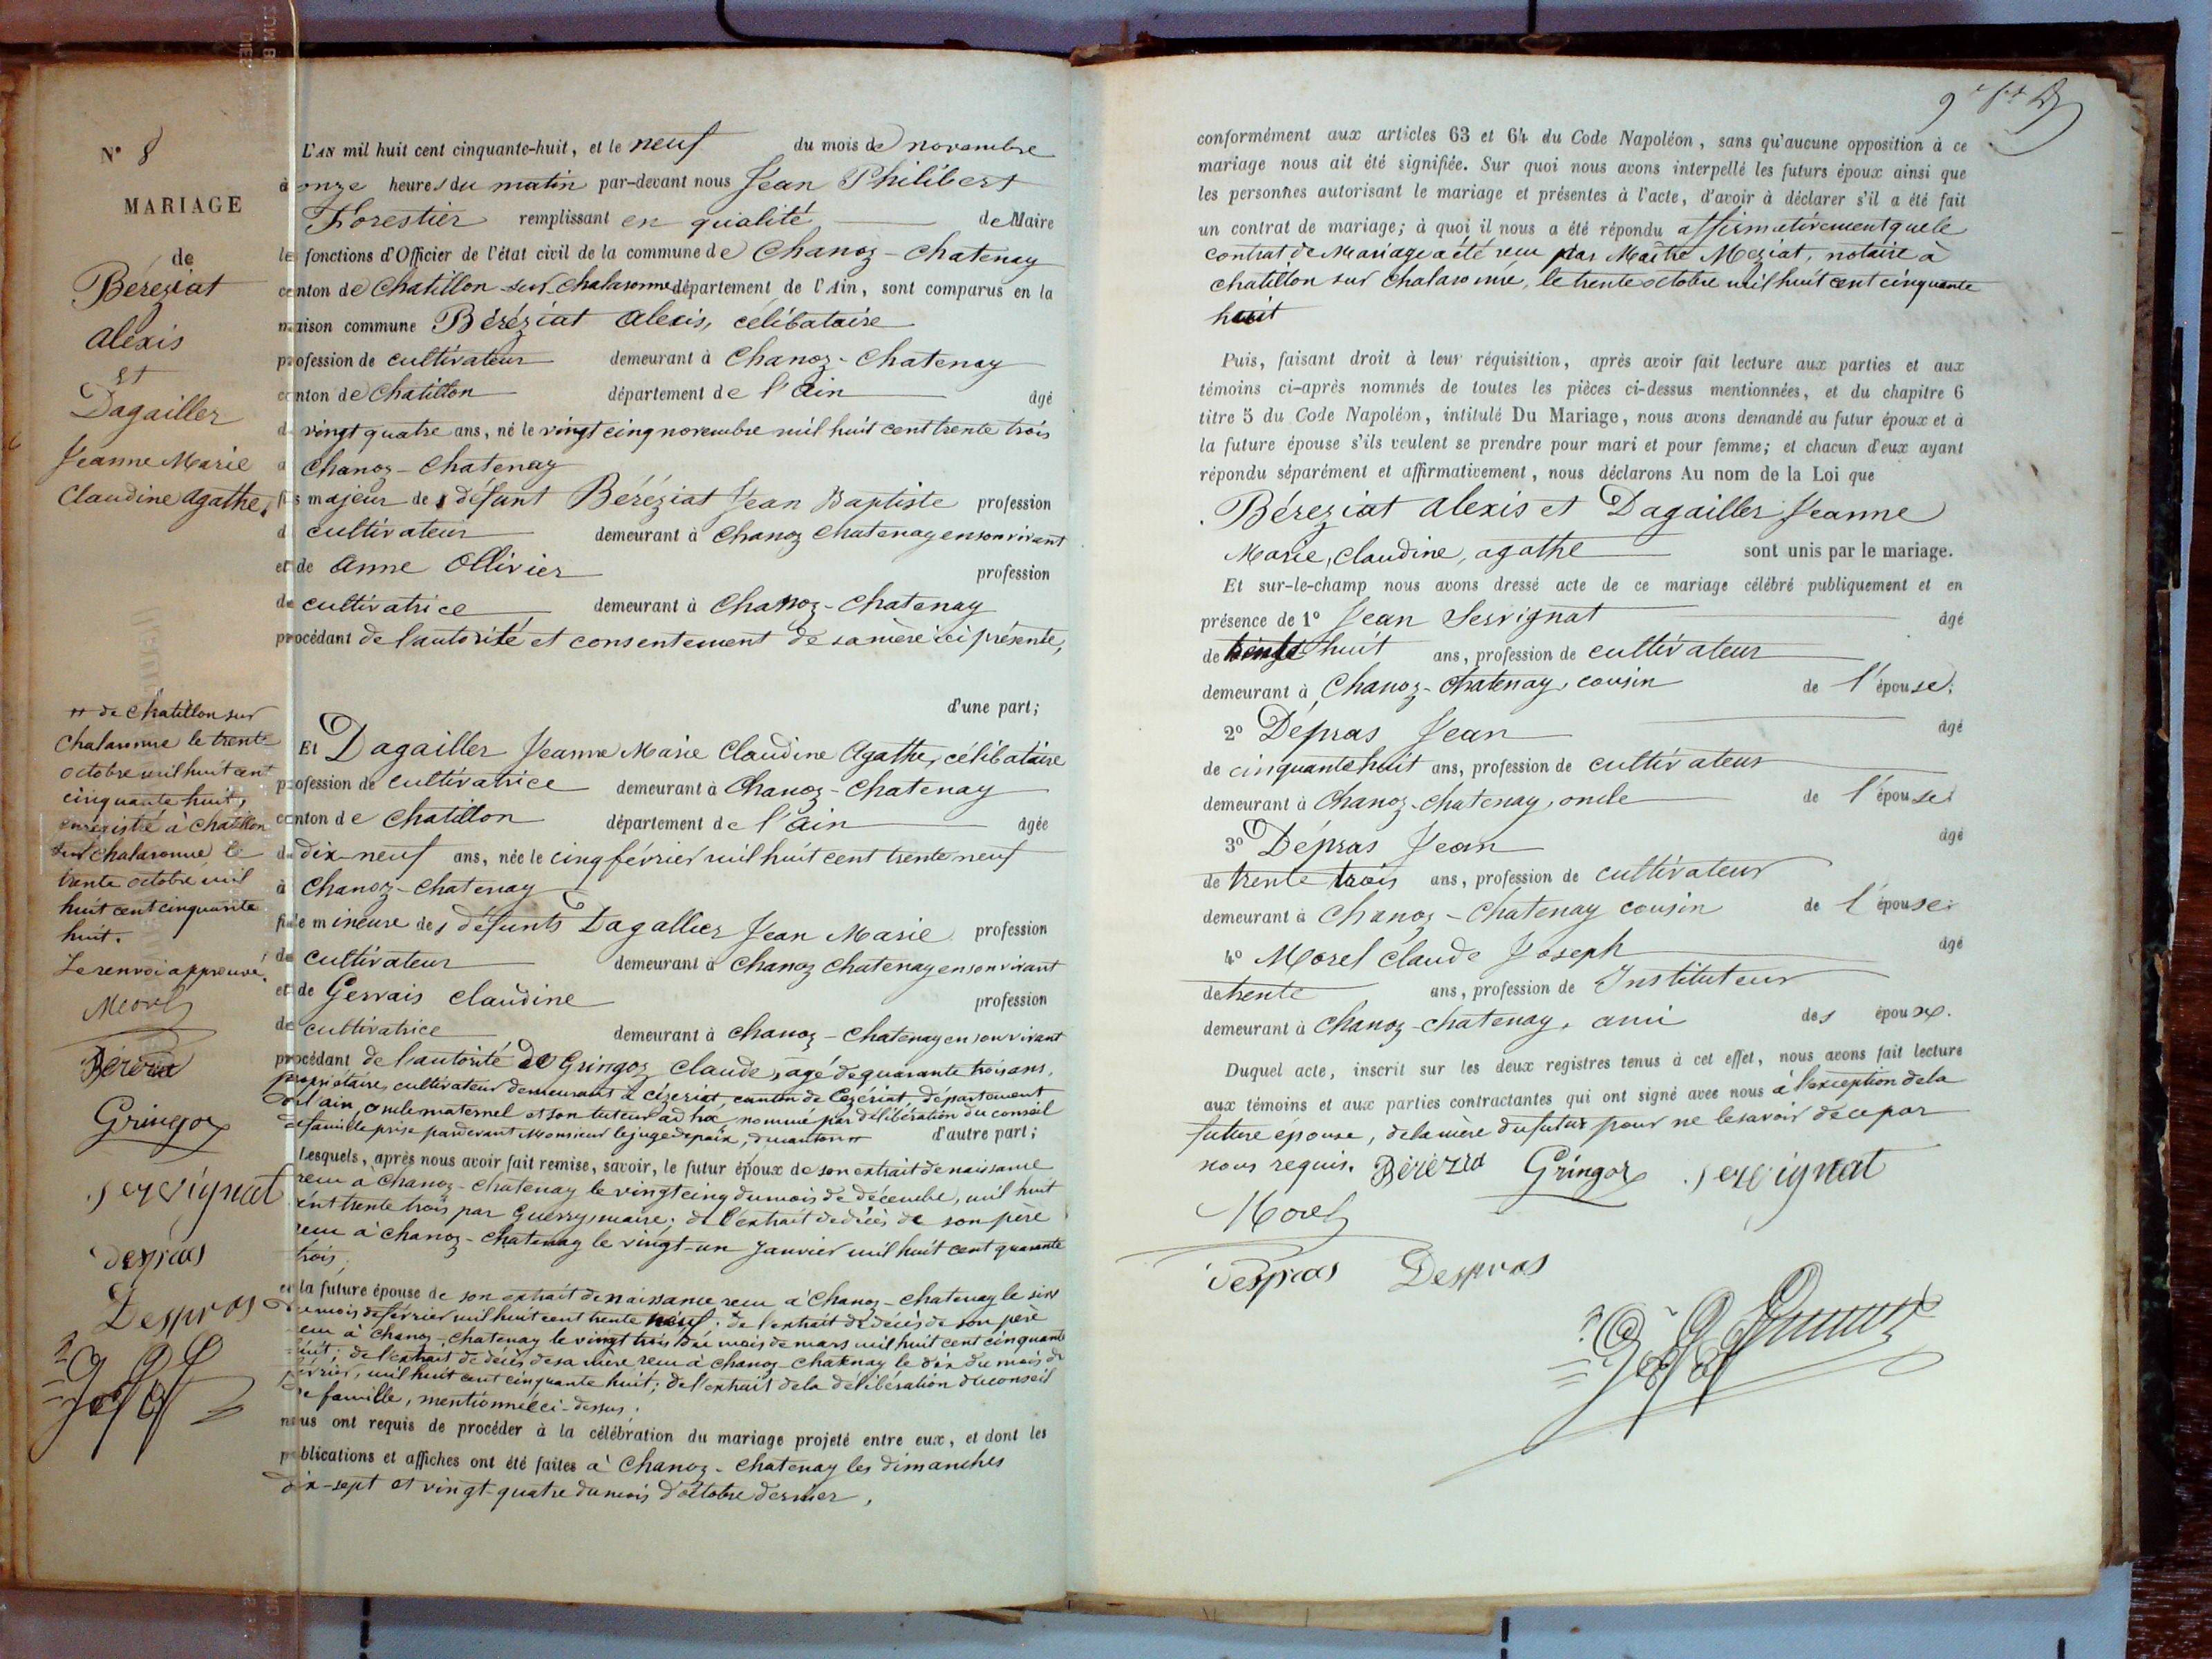 N° 8
MARIAGE
de
Béréziat
alexis
et
Dagailler
Jeanne Marie
Claudine agathe.
L'AN mil huit cent cinquante-huit, et le neuf du mois de novembre
à onze heures du matin par-devant nous Jean Philibert
Forestier remplissant en qualité de Maire
les fonctions d'Officier de l'état civil de la commune de Chanoz-Chatenay
canton de Chatillon sur Chalaronne département de l'Ain, sont comparus en la
maison commune Béréziat alexis, célibataire
profession de cultivateur demeurant à Chanoz-Chatenay
canton de Chatillon département de l'ain âgé
de vingt quatre ans, né le vingt cinq novembre mil huit cent trente trois
à Chanoz-Chatenay
fils majeur de défunt Béréziat Jean Baptiste profession
de cultivateur demeurant à Chanoz Chatenay en son vivant
et de Anne Ollivier profession
de cultivatrice demeurant à Chanoz-Chatenay
procédant de l'autorité et consentement de sa mère ici présente,
d'une part;
Et Dagailler Jeanne Marie Claudine Agathe, célibataire
profession de cultivatrice demeurant à Chanoz-Chatenay
canton de Chatillon département de l'ain âgée
de dix-neuf ans, née le cinq février mil huit cent trente neuf
à Chanoz-Chatenay
fille mineure des défunts Dagallier Jean Marie profession
de cultivateur demeurant à Chanoz Chatenay en son vivant
et de Gervais Claudine profession
de cultivatrice demeurant à Chanoz-Chatenay en son vivant
procédant de l'autorité de Gringoz Claude, agé de quarante trois ans,
propriétaire, cultivateur demeurant à cézeriat, canton de Cezériat, département
de l'ain, oncle maternel et son tuteur ad hoc nommé par délibération du conseil
de famille prise pardevant Monsieur le juge de paix, du canton # d'autre part;
Lesquels, après nous avoir fait remise, savoir, le futur époux de son extrait de naissance
reçu à Chanoz-Chatenay le vingt cinq du mois de décembre, mil huit
cent trente trois par Guerry maire; de l'extrait de décès de son père
reçu à Chanoz-Chatenay le vingt-un Janvier mil huit cent quarante
trois;
et la future épouse de son extrait de naissance reçu à Chanoz-Chatenay le six
du mois de février mil huit cent trente neuf; de l'extrait de décès de son père
reçu à Chanoz-Chatenay le vingt trois du mois de mars mil huit cent cinquante
huit; de l'extrait de décès de sa mère reçu à Chanoz Chatenay le dix du mois de
février, mil huit cent cinquante huit; de l'extrait de la délibération du conseil
de famille, mentionnée ci-dessus;
nous ont requis de procéder à la célébration du mariage projeté entre eux, et dont les
publications et affiches ont été faites à Chanoz-Chatenay les dimanches
dix-sept et vingt-quatre du mois d'octobre dernier,
# de Chatillon sur
Chalaronne le trente
octobre mil huit cent
cinquante huit,
enregistré à Chatillon
sur Chalaronne le
trente octobre mil
huit cent cinquante
huit.
Le renvoi approuvé.
Morel
Gringoz
servignat
despras
Despras
conformément aux articles 63 et 64 du Code Napoléon, sans qu'aucune opposition à ce
mariage nous ait été signifiée. Sur quoi nous avons interpellé les futurs époux ainsi que
les personnes autorisant le mariage et présentes à l'acte, d'avoir à déclarer s'il a été fait
un contrat de mariage; à quoi il nous a été répondu affirmativement que le
contrat de Mariage a été reçu par Maître Meziat, notaire à
chatillon sur Chalaronne, le trente octobre mil huit cent cinquante
huit
Puis, faisant droit à leur réquisition, après avoir fait lecture aux parties et aux
témoins ci-après nommés de toutes les pièces ci-dessus mentionnées, et du chapitre 6
titre 5 du Code Napoléon, intitulé Du Mariage, nous avons demandé au futur époux et à
la future épouse s'ils veulent se prendre pour mari et pour femme; et chacun d'eux ayant
répondu séparément et affirmativement, nous déclarons Au nom de la Loi que
Béreziat alexis et Dagailler Jeanne
Marie, Claudine, agathe sont unis par le mariage.
Et sur-le-champ nous avons dressé acte de ce mariage célébré publiquement et en
présence de 1° Jean Servignat âgé
de trente huit ans, profession de cultivateur
demeurant à Chanoz-Chatenay, cousin de l'épouse;
2° Dépras Jean âgé
de cinquante huit ans, profession de cultivateur
demeurant à Chanoz-Chatenay, oncle de l'épouse;
3° Dépras Jean âgé
de trente trois ans, profession de cultivateur
demeurant à Chanoz-Chatenay cousin de l'épouse;
4° Morel Claude Joseph âgé
de trente ans, profession de Instituteur
demeurant à Chanoz-Chatenay, ami des époux.
Duquel acte, inscrit sur les deux registres tenus à cet effet, nous avons fait lecture
aux témoins et aux parties contractantes qui ont signé avec nous à l'exception de la
future épouse, de la mère du futur pour ne le savoir de ce par
nous requis. Béréziat Gringoz servignat
Morel
despras Despras